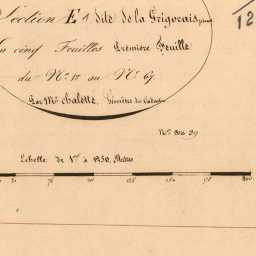 Section E, dite de la Grigorais
En cinq Feuilles Première Feuille
du N.º 1.er au N.º 67.
Par M.r Chalette, Géomètre du Cadastre
12
Echelle de 1 à 1250. Mètres